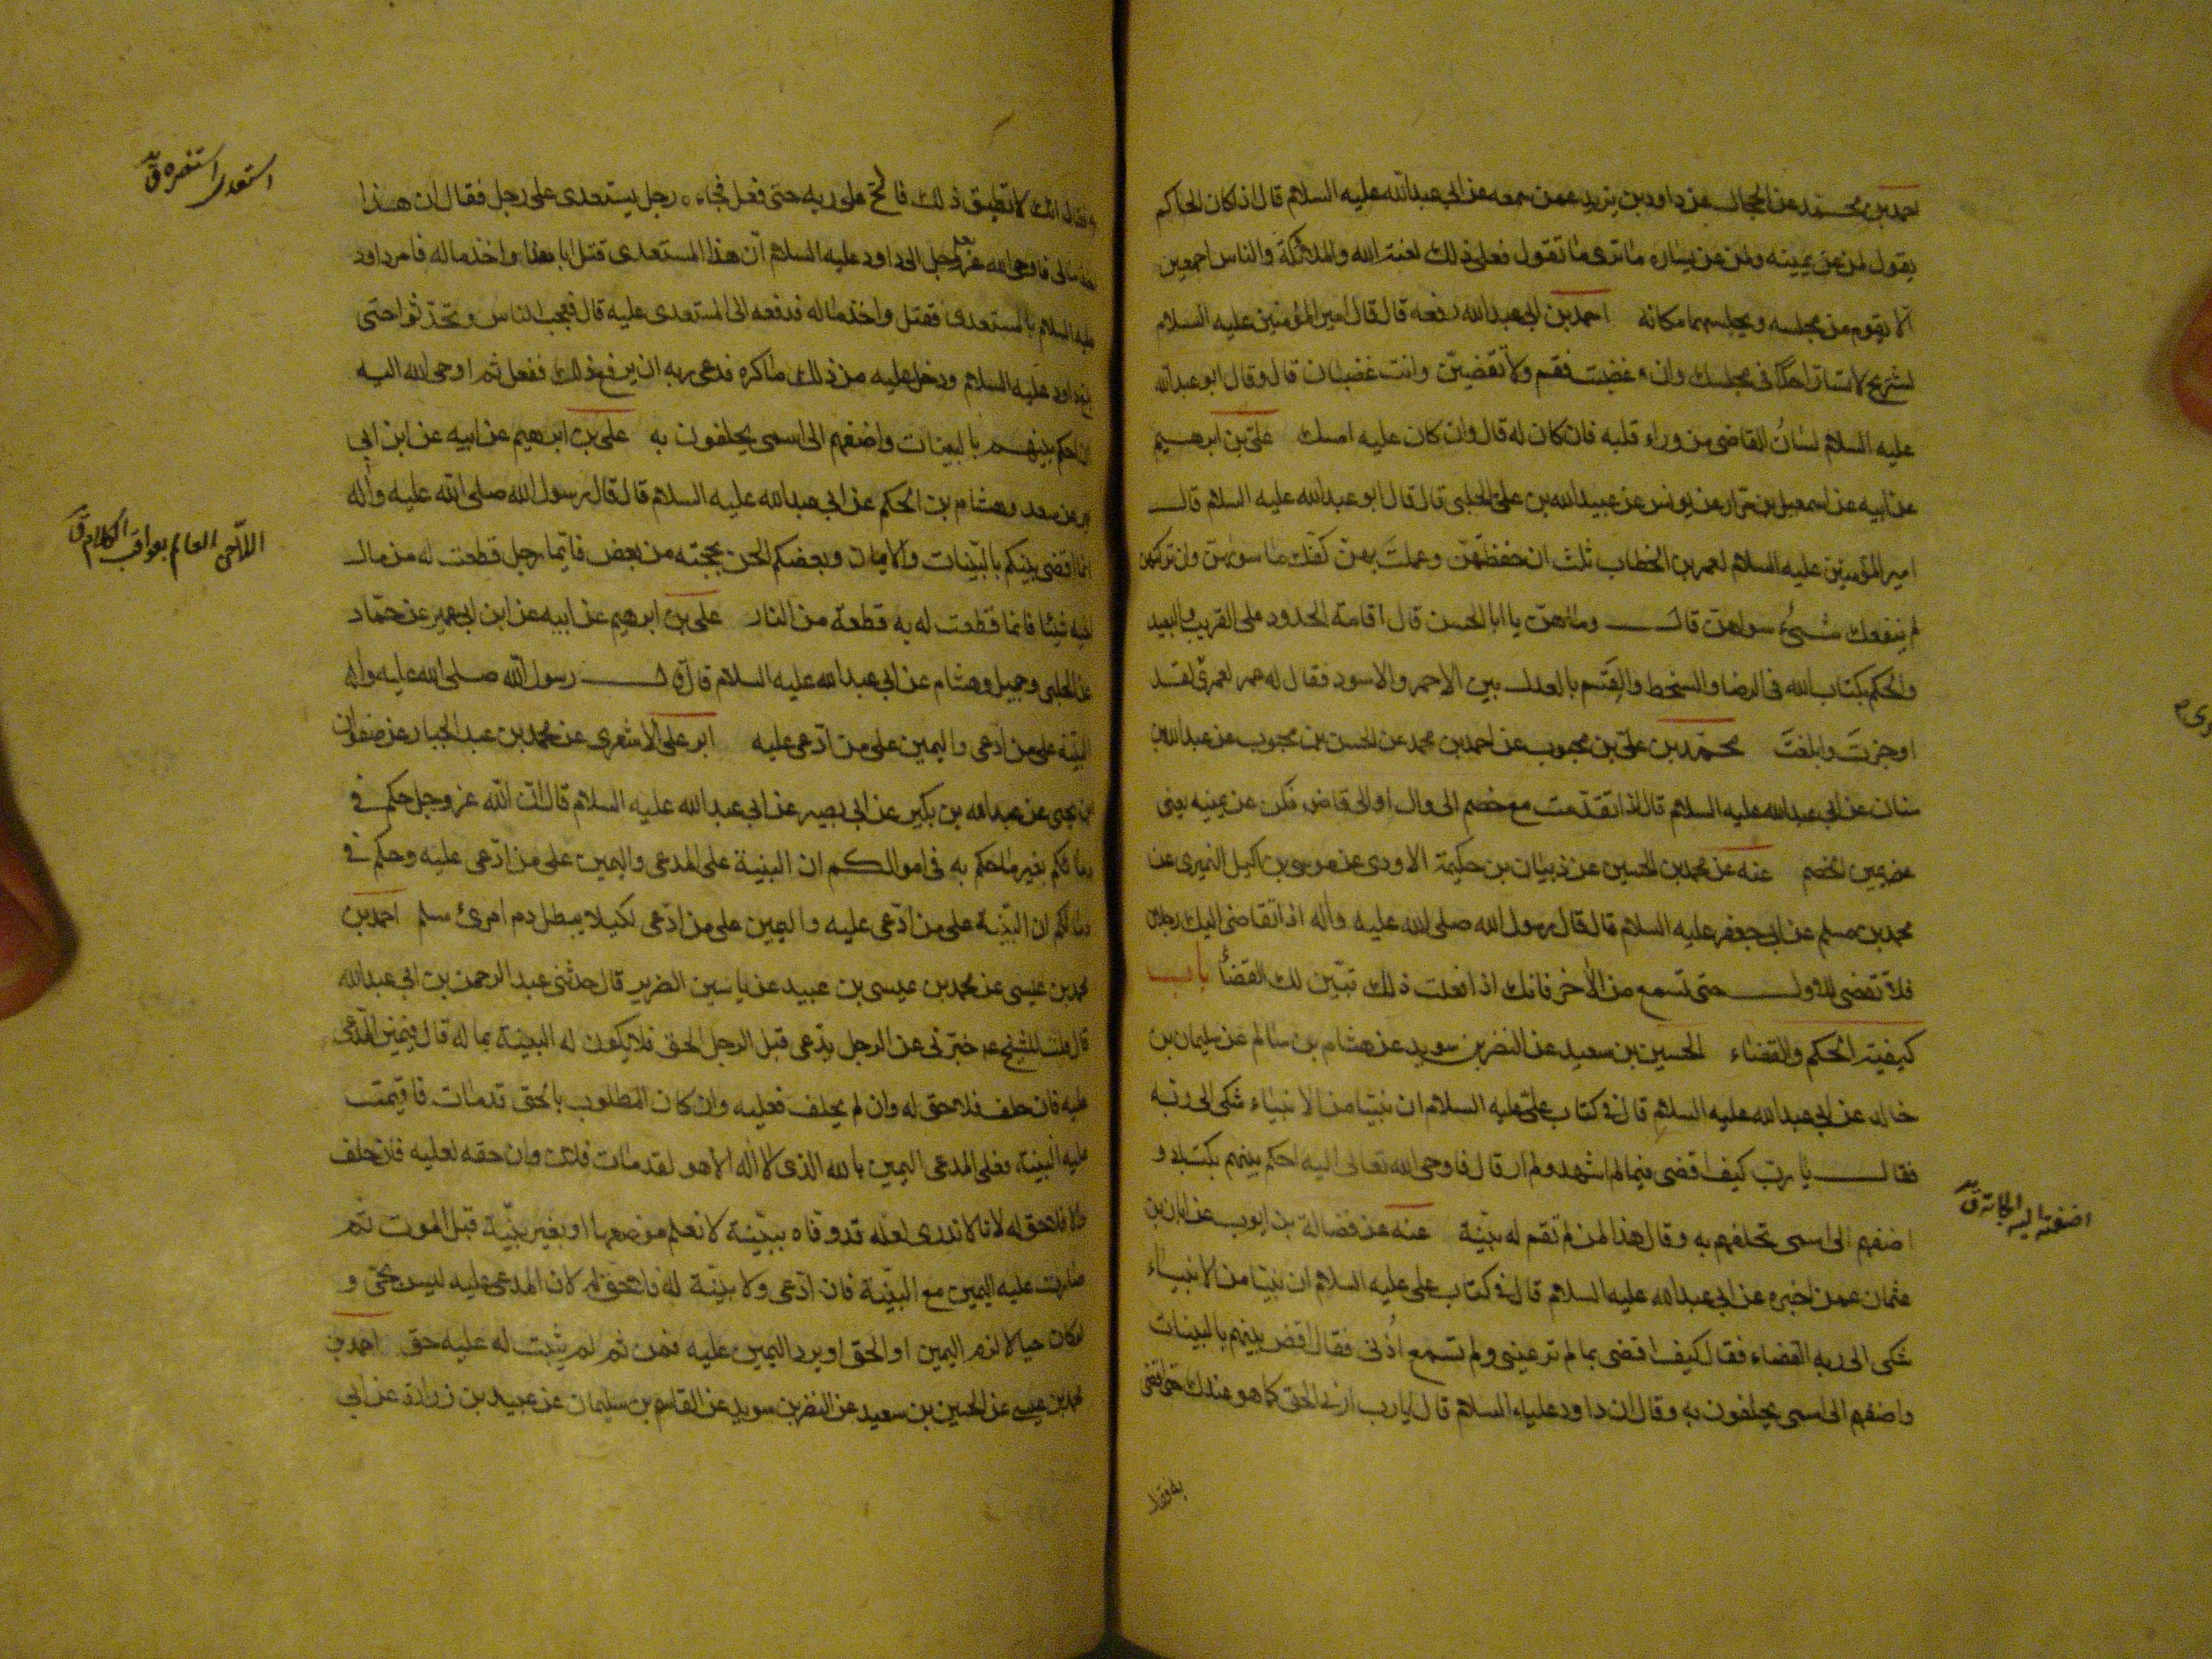 احمد بن محمد عن الحجال عن داود بن يزيد عمن سمعه عن ابي عبدالله عليه السلام قال اذا كان الحاكم
يقول لمن عن يمينه ولمن عن يساره ما ترى ما تقول فعلى ذلك لعنة الله والملائكة والناس اجمعين
الا يقوم من مجلسه ويجلسهما مكانه احمد بن ابي عبدالله رفعه قال قال امير المؤمنين عليه السلام
لشريح لا تسار احدا في مجلسك وان غضبت فقم ولا تقضين وانت غضبان قال وقال ابو عبدالله
عليه السلام لسان القاضي من وراء قلبه فان كان له قال وان كان عليه امسك علي بن ابرهيم
عن ابيه عن اسمعيل بن مرار عن يونس عن عبيد الله بن علي الحلبي قال قال ابو عبدالله عليه السلام قال
امير المؤمنين عليه السلام لعمر بن الخطاب ثلث ان حفظتهن وعملت بهن كفتك ما سواهن وان تركتهن
لم ينفعك شيء سواهن قال وما هن يا ابا الحسن قال اقامة الحدود على القريب والبعيد
والحكم بكتاب الله في الرضا والسخط والقسم بالعدل بين الاحمر والاسود فقال له عمر لعمري لقد
اوجزت وابلغت محمد بن علي بن محبوب عن احمد بن محمد عن الحسن بن محبوب عن عبدالله بن
سنان عن ابي عبدالله عليه السلام قال اذا تقدمت مع خصم الى وال او الى قاض فكن عن يمينه يعني
عن يمين الخصم عنه عن محمد بن الحسين عن ذبيان بن حكيمة الاودي عن موسى بن اكيل النميري عن
محمد بن مسلم عن ابي جعفر عليه السلام قال قال رسول الله صلى الله عليه وآله اذا تقاضى اليك رجلان
فلا تقضى للاول حتى تسمع من الآخر فانك اذا فعلت ذلك تبين لك القضاء باب
كيفية الحكم والقضاء الحسين بن سعيد عن النضر بن سويد عن هشام بن سالم عن سليمان بن
خالد عن ابي عبدالله عليه السلام قال في كتاب علي عليه السلام ان نبيا من الانبياء شكى الى ربه
فقال يا رب كيف اقضى فيما لم اشهد ولم ار قال فاوحى الله تعالى اليه احكم بينهم بكتابي و
اضفهم الى اسمى تحلفهم به وقال هذا لمن لم تقم له بينة عنه عن فضالة بن ايوب عن ابان بن
عثمان عمن اخبره عن ابي عبدالله عليه السلام قال في كتاب علي عليه السلام ان نبيا من الانبياء
شكى الى ربه القضاء فقال كيف اقضى بما لم تر عيني ولم تسمع اذني فقال اقض بينهم بالبينات
واضفهم الى اسمى يحلفون به وقال ان داود عليه السلام قال يا رب ارني الحق كما هو عندك حتى اقضى
اضفته اليه الجاته ق
به فقال
به فقال انك لا تطيق ذلك فالح على ربه حتى فعل فجاءه رجل يستعدى على رجل فقال ان هذا
اخذ مالي فاوحى الله عز وجل الى داود عليه السلام ان هذا المستعدى قتل ابا هذا واخذ ماله فامر داود
عليه السلام بالمستعدى فقتل واخذ ماله فدفعه الى المستعدى عليه قال فعجب الناس وتحدثوا حتى
بلغ داود عليه السلام ودخل عليه من ذلك ما كره فدعى ربه ان يرفع ذلك ففعل ثم اوحى الله اليه
ان احكم بينهم بالبينات واضفهم الى اسمى يحلفون به علي بن ابرهيم عن ابيه عن ابن ابي
عمير عن سعد وهشام بن الحكم عن ابي عبدالله عليه السلام قال قال رسول الله صلى الله عليه وآله
انما اقضى بينكم بالبينات والايمان وبعضكم الحن بحجته من بعض فايما رجل قطعت له من مال
اخيه شيئا فانما قطعت له به قطعة من النار علي بن ابرهيم عن ابيه عن ابن ابي عمير عن حماد
عن الحلبي وجميل وهشام عن ابي عبدالله عليه السلام قال قال رسول الله صلى الله عليه وآله
البينة على من ادعى واليمين على من ادعى عليه ابو علي الاشعري عن محمد بن عبد الجبار عن صفوان
بن يحيى عن عبدالله بن بكير عن ابي بصير عن ابي عبدالله عليه السلام قال ان الله عز وجل حكم في
دمائكم بغير ما حكم به في اموالكم ان البينة على المدعى واليمين على من ادعى عليه وحكم في
دمائكم ان البينة على من ادعى عليه واليمين على من ادعى لكيلا يبطل دم امرئ مسلم احمد بن
محمد بن عيسى عن محمد بن عيسى بن عبيد عن ياسين الضرير قال حدثنى عبد الرحمن بن ابي عبدالله
قال قلت للشيخ خبرني عن الرجل يدعى قبل الرجل الحق فلا يكون له البينة بما له قال فيمين المدعى
عليه فان حلف فلا حق له وان لم يحلف فعليه وان كان المطلوب بالحق قد مات فاقيمت
عليه البينة فعلى المدعى اليمين بالله الذي لا اله الا هو لقد مات فلان وان حقه لعليه فان حلف
والا فلا حق له لانا لا ندري لعله قد وفاه ببينة لا نعلم موضعها او بغير بينة قبل الموت ثم
صارت عليه اليمين مع البينة فان ادعى ولا بينة له فلا حق له لان المدعى عليه ليس بحي و
لو كان حيا لالزم اليمين او الحق او يرد اليمين عليه فمن ثم لم يثبت له عليه حق احمد بن
محمد بن عيسى عن الحسين بن سعيد عن النضر بن سويد عن القاسم بن سليمان عن عبيد بن زرارة عن ابي
استعدى استنصره ق
اللاحن العالم بعواقب الكلام ق